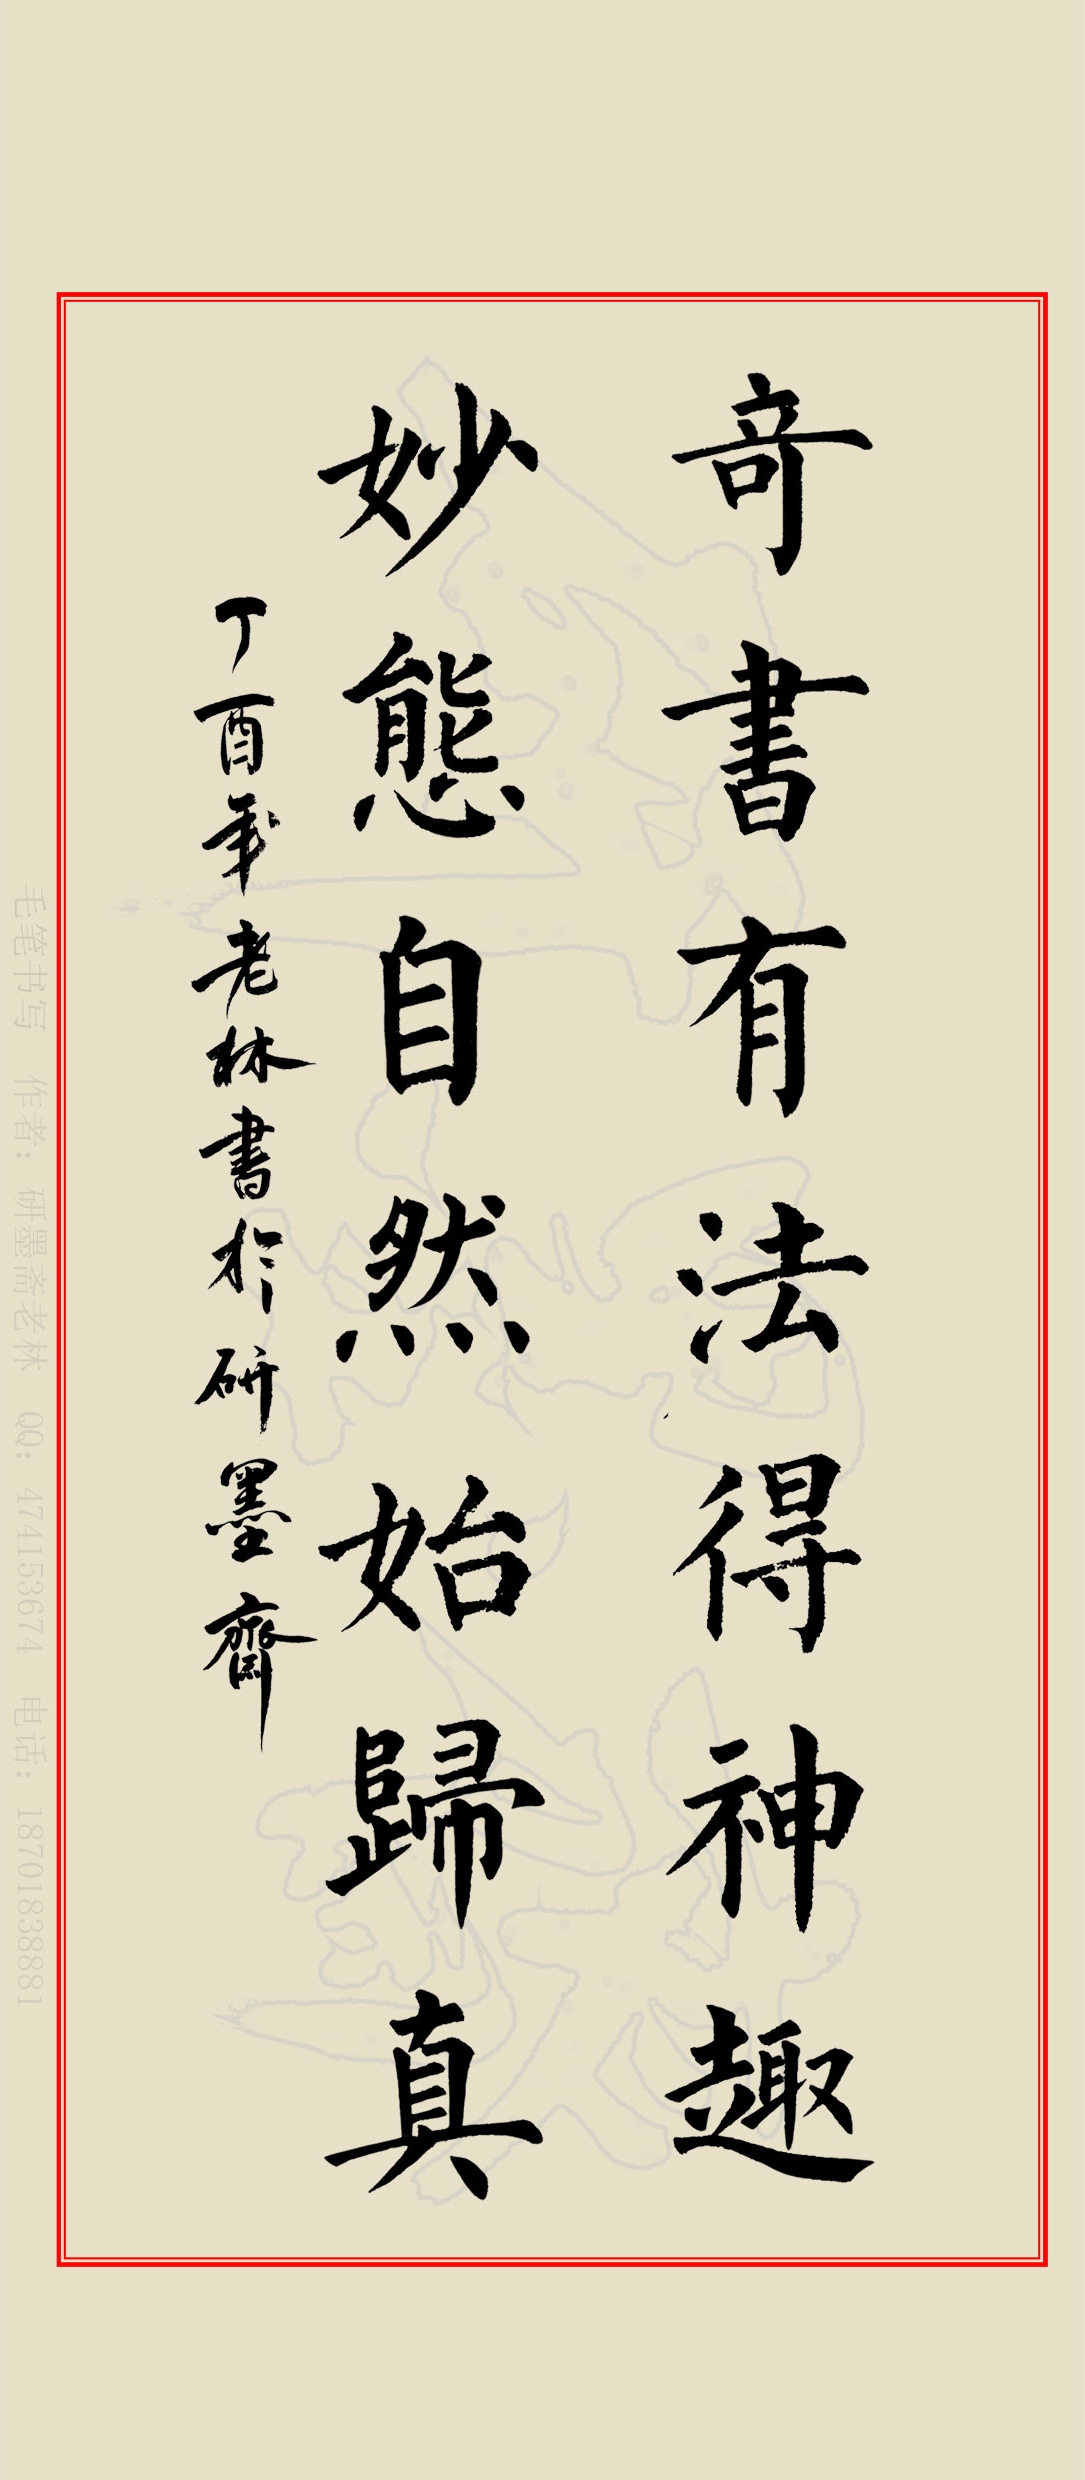 奇書有法得神趣
妙態自然始歸真
丁酉年老林書於研墨齋
毛笔书写 作者：研墨斋老林 QQ：474153674 电话：18701838881